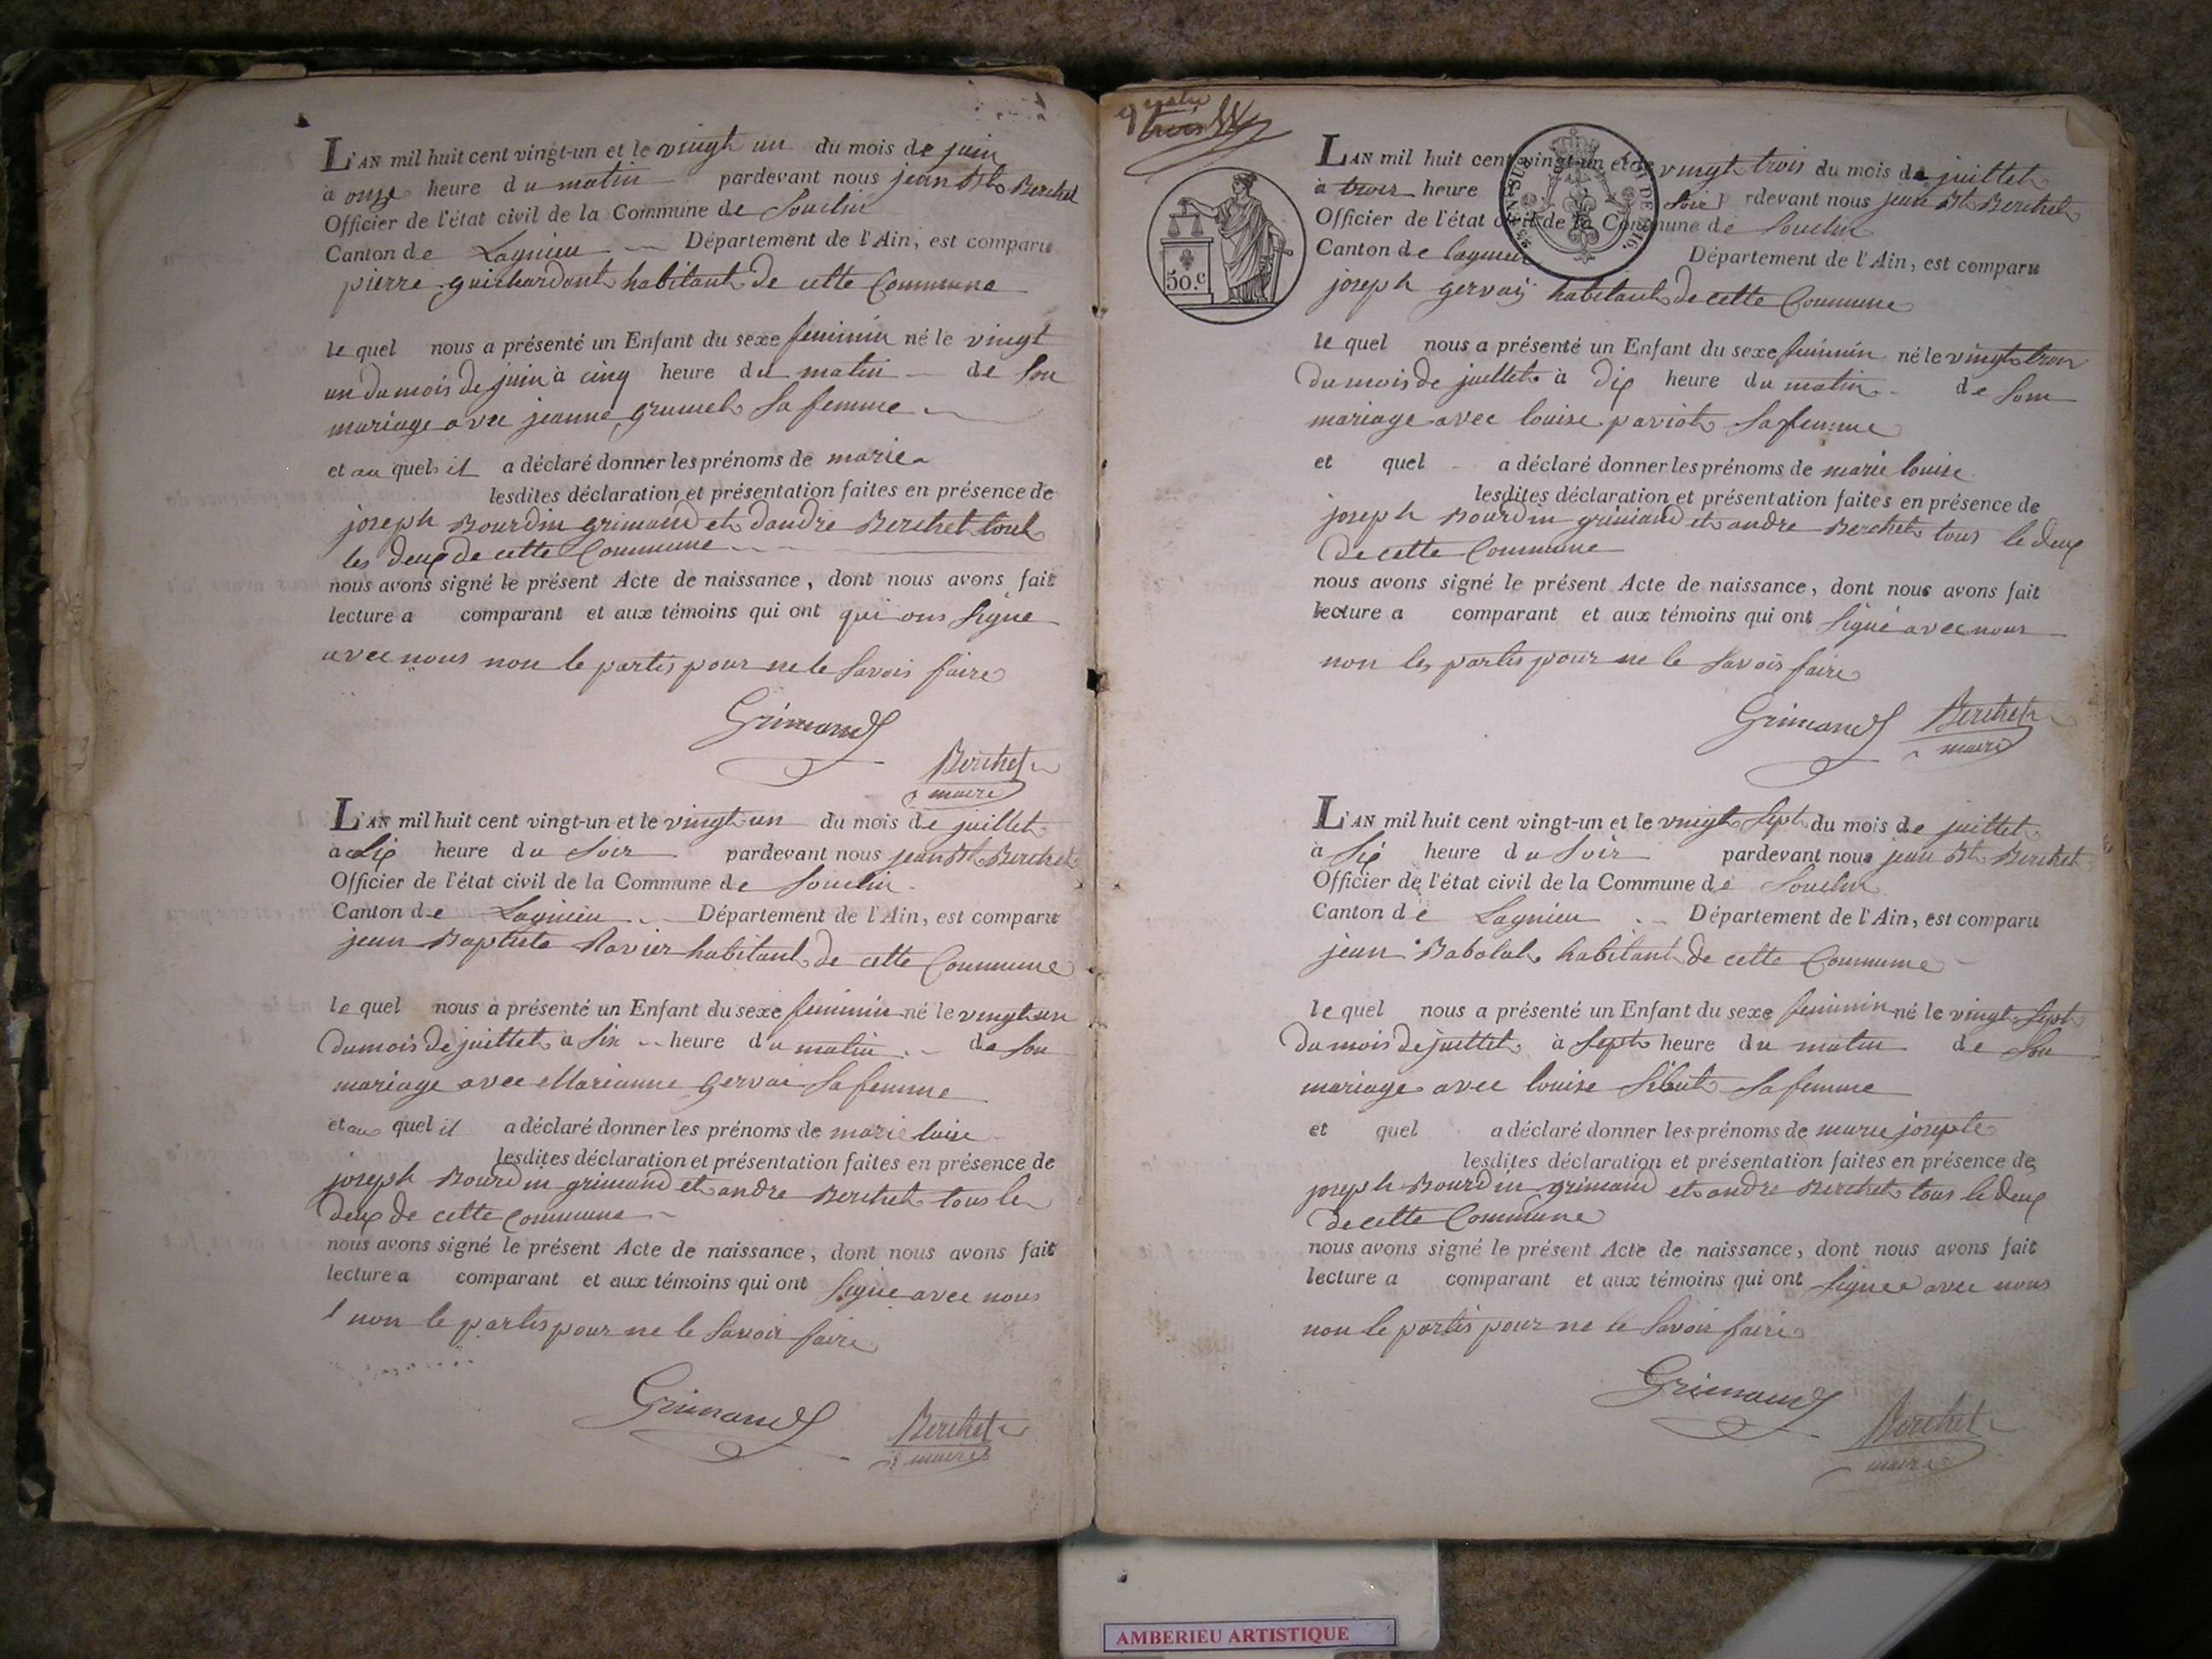 L'AN mil huit cent vingt-un et le vingt un du mois de juin
à onze heure du matin pardevant nous jean Bte Berchet
Officier de l'état civil de la Commune de Souclin
Canton de Lagnieu Département de l'Ain, est comparu
pierre guichardant habitant de cette Commune
le quel nous a présenté un Enfant du sexe feminin né le vingt
un du mois de juin à cinq heure du matin de son
mariage avec jeanne grumet sa femme
et au quel il a déclaré donner les prénoms de marie
lesdites déclaration et présentation faites en présence de
joseph Bourdin grimand et dandré Berchet tout
les deux de cette Commune
nous avons signé le présent Acte de naissance, dont nous avons fait
lecture a comparant et aux témoins qui ont qui ons signé
avec nous non le partis pour ne le savois faire
Grimand
Berchet
maire
L'AN mil huit cent vingt-un et le vingt un du mois de juillet
à six heure du soir pardevant nous jean Bt Berchet
Officier de l'état civil de la Commune de Souclin
Canton de Lagnieu Département de l'Ain, est comparu
jean Baptiste Ravier habitant de cette Commune
le quel nous a présenté un Enfant du sexe feminin né le vingt un
du mois de juillet à six heure du matin de son
mariage avec Marianne gervai sa femme
et au quel il a déclaré donner les prénoms de marie luise
lesdites déclaration et présentation faites en présence de
joseph Bourdin grimand et andre Berchet tous le
deux de cette commune
nous avons signé le présent Acte de naissance, dont nous avons fait
lecture a comparant et aux témoins qui ont signé avec nous
non le partis pour ne le savoir faire
Grimand
Berchet
maire
quatre
trois
50.c
L'AN mil huit cent vingt-un et le vingt trois du mois de juillet
à trois heure soir rdevant nous jean Bt Berchet
Officier de l'état civil de la Commune de Souclin
Canton de lagnieu Département de l'Ain, est comparu
joseph gervais habitant de cette Commune
le quel nous a présenté un Enfant du sexe feminin né le vingt trois
du mois de juillet à dix heure du matin de som
mariage avec louise pariot sa femme
et quel a déclaré donner les prénoms de marie louise
lesdites déclaration et présentation faites en présence de
joseph Bourdin grimand et andre Berchet tous le deux
de cette Commune
nous avons signé le présent Acte de naissance, dont nous avons fait
lecture a comparant et aux témoins qui ont signé avec nous
non les partis pour ne le savois faire
Grimand Berchet
maire
L'AN mil huit cent vingt-un et le vingt sept du mois de juillet
à six heure du soir pardevant nous jean Bt Berchet
Officier de l'état civil de la Commune de Souclin
Canton de Lagnieu Département de l'Ain, est comparu
jean Babolat habitant de cette Commune
le quel nous a présenté un Enfant du sexe feminin né le vingt sept
du mois de juillet à sept heure du matin de son
mariage avec louise Sibut sa femme
et quel a déclaré donner les prénoms de marie josepte
lesdites déclaration et présentation faites en présence de
joseph Bourdin grimand et andre Berchet tous le deux
de cette Commune
nous avons signé le présent Acte de naissance, dont nous avons fait
lecture a comparant et aux témoins qui ont signee avec nous
non le partis pour ne le savoir faire
Grimand
Berchet
maire
AMBERIEU ARTISTIQUE